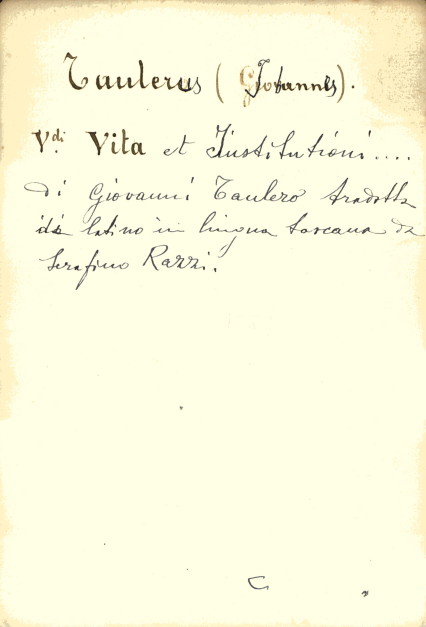 Taulerus (Johannes).
V.di Vita et Institutioni....
di Giovanni Taulero tradotta
di latino in lingua toscana da
Serafino Razzi.
C